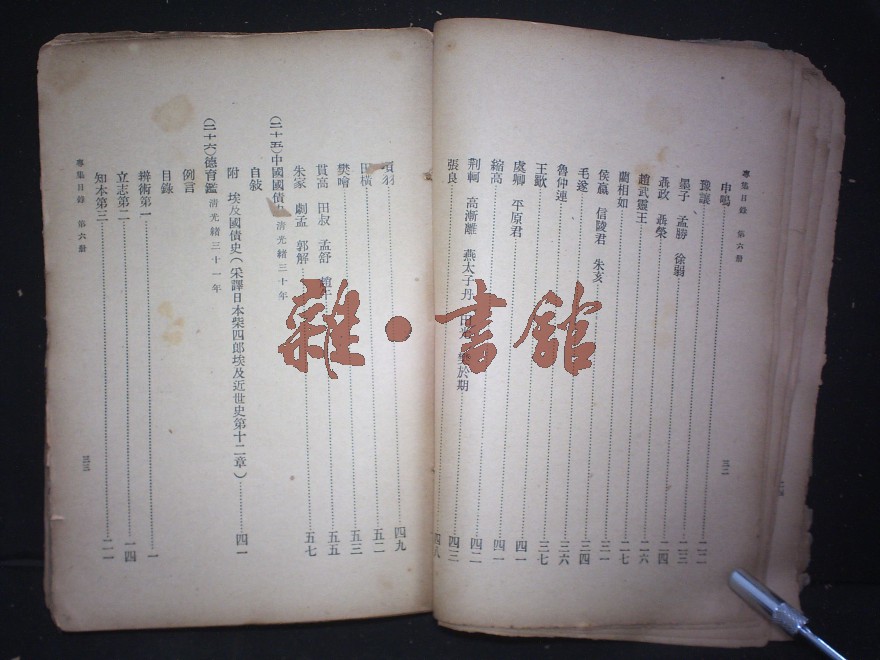 專集目錄 第六册
三二
申鳴 二二
豫讓
墨子 孟勝 徐弱 二三
聶政 聶榮 二四
趙武靈王 二六
藺相如 二七
侯嬴 信陵君 朱亥 三一
毛遂 三四
魯仲連 三六
王歜 三七
虞卿 平原君 四一
縮高 四一
荆軻 高漸離 燕太子丹 樊於期 四二
張良 四三
四八
項羽 四九
田橫 五二
樊噲 五三
貫高 田叔 孟舒 五五
朱家 劇孟 郭解 五七
(二十五)中國國債 清光緒三十年
自敍
附 埃及國債史(采譯日本柴四郎埃及近世史第十二章) 四一
(二十六)德育鑑 清光緒三十一年
例言
目錄
辨術第一 一
立志第二 一四
知本第三 二一
專集目錄 第六册
三三
雜·書館